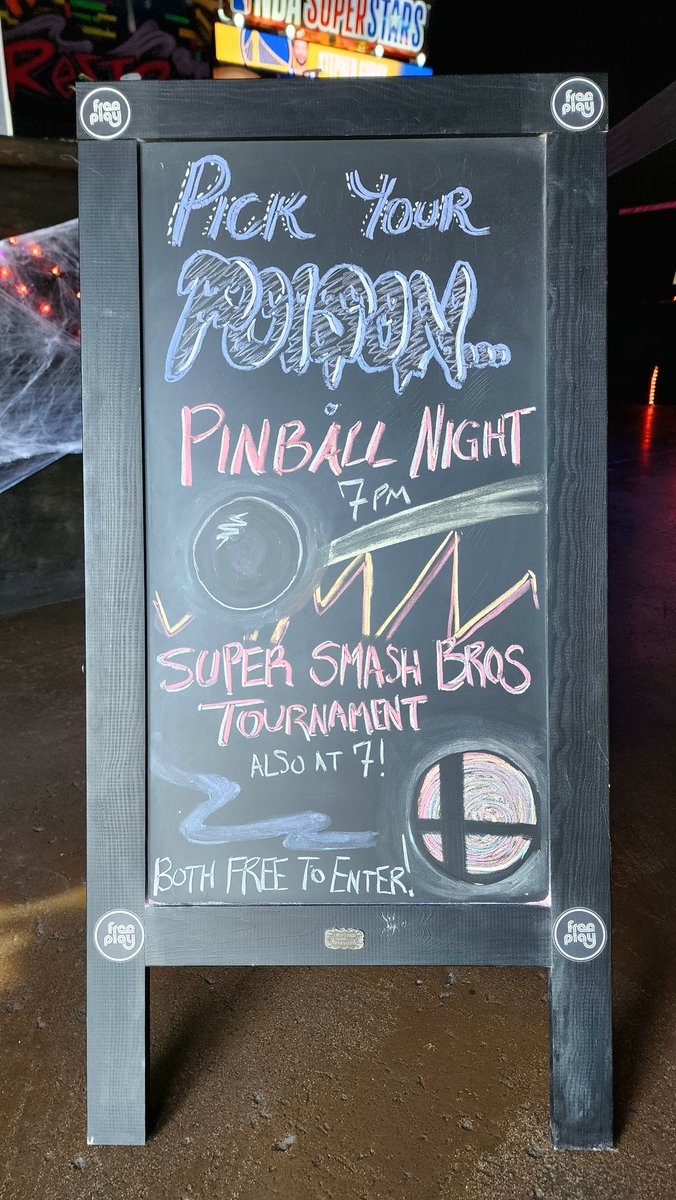 NBA SUPERSTARS
STEPHEN CURRY
free play
free play
PICK YOUR
POISON...
PINBALL NIGHT
7 PM
SUPER SMASH BROS
TOURNAMENT
ALSO AT 7!
BOTH FREE TO ENTER!
free play
free play